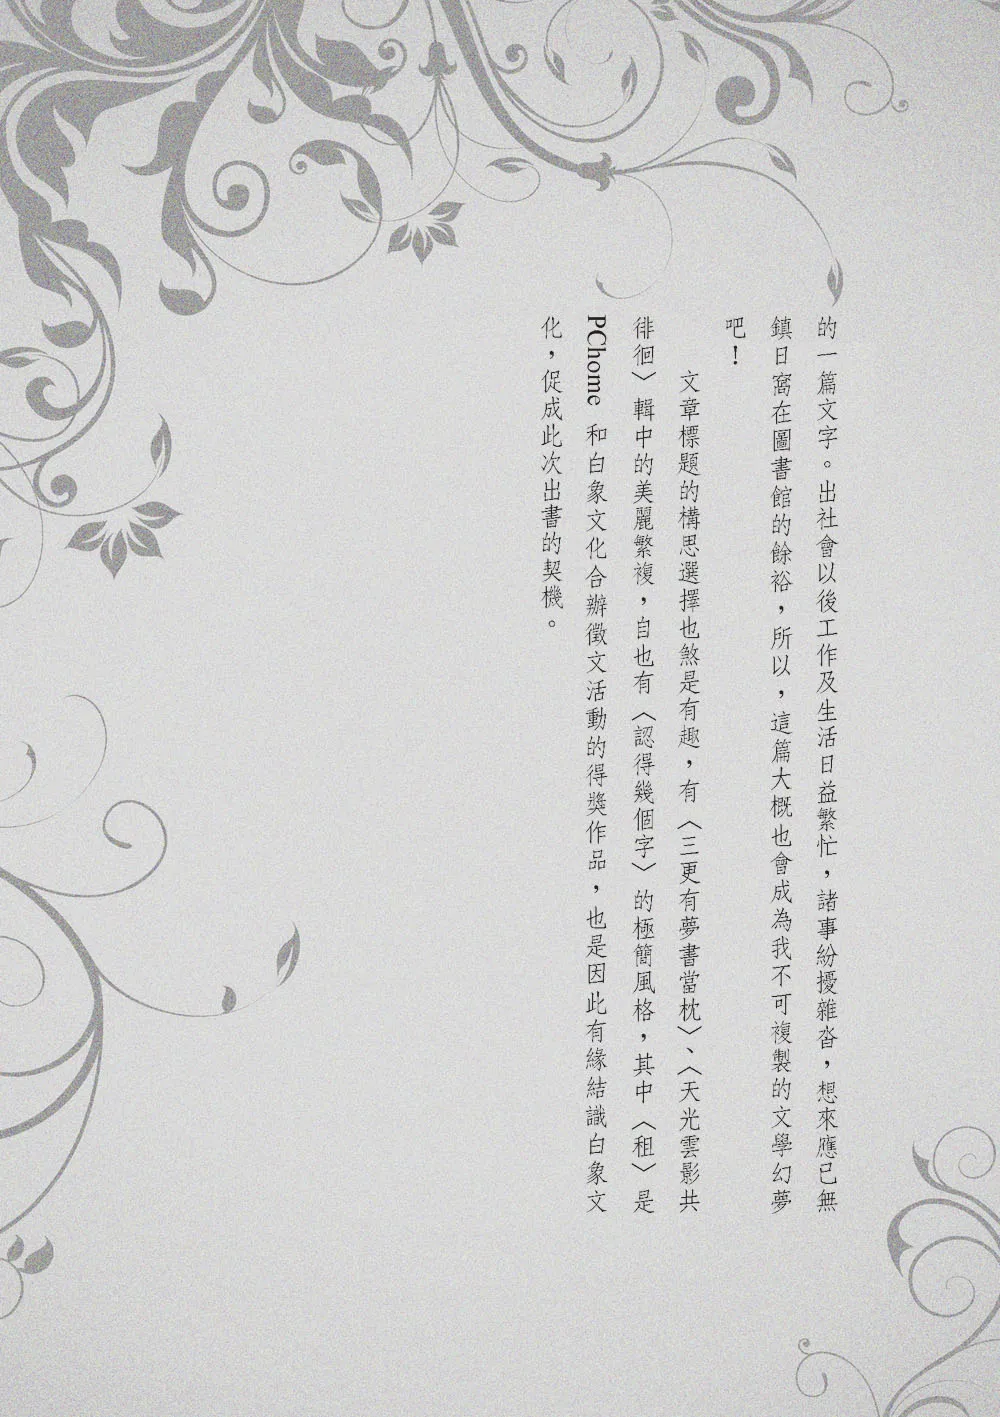 的一篇文字。出社會以後工作及生活日益繁忙，諸事紛擾雜沓，想來應已無
鎮日窩在圖書館的餘裕，所以，這篇大概也會成為我不可複製的文學幻夢
吧！
文章標題的構思選擇也煞是有趣，有〈三更有夢書當枕〉、〈天光雲影共
徘徊〉輯中的美麗繁複，自也有〈認得幾個字〉的極簡風格，其中〈租〉是
PChome 和白象文化合辦徵文活動的得獎作品，也是因此有緣結識白象文
化，促成此次出書的契機。